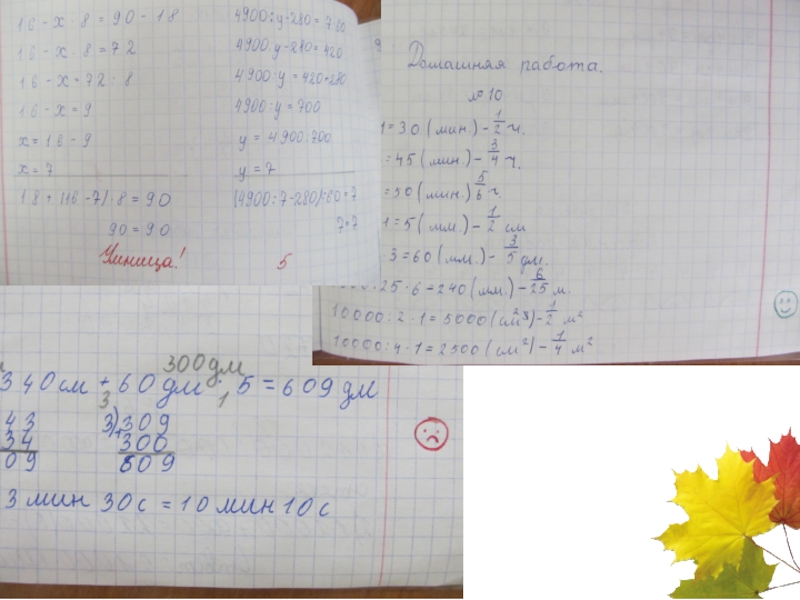 16 - x · 8 = 90 - 18
16 - x · 8 = 72
16 - x = 72 : 8
16 - x = 9
x = 16 - 9
x = 7
18 + (16 - 7) · 8 = 90
90 = 90
Умница!
4900 : y - 280 = 7·60
4900 : y - 280 = 420
4900 : y = 420 + 280
4900 : y = 700
y = 4900 : 700
y = 7
(4900 : 7 - 280) : 60 = 7
7 = 7
5
Домашняя работа.
№ 10
1 = 30 (мин.) - 1/2 ч.
= 45 (мин) - 3/4 ч.
= 50 (мин.) 5/6 ч.
1 = 5 (мм.) - 1/2 см
· 3 = 60 (мм.) - 3/5 дм.
: 25 · 6 = 240 (мм.) - 6/25 м.
10000 : 2 · 1 = 5000 (см²) - 1/2 м²
10000 : 4 · 1 = 2500 (см²) - 1/4 м²
300 дм
340 см + 60 дм · 5 = 609 дм
3 1
43 3) 309
34 300
09 609
3 мин 30 с = 10 мин 10 с